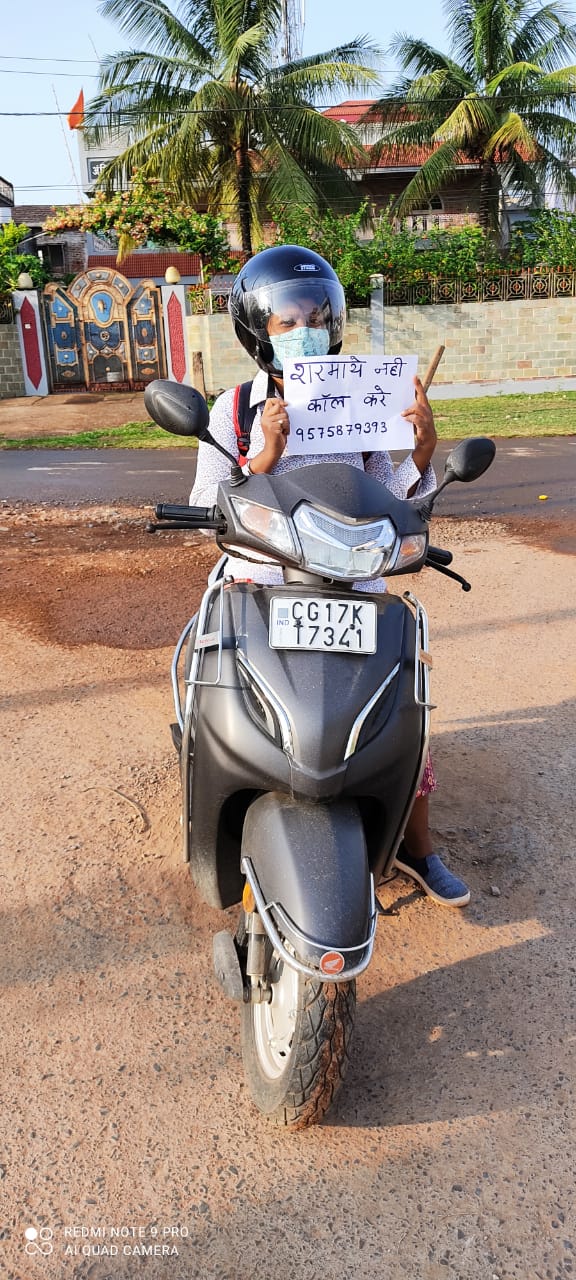 शरमाये नही
कॉल करे
9575879393
IND
CG17K
17341
REDMI NOTE 9 PRO
AI QUAD CAMERA